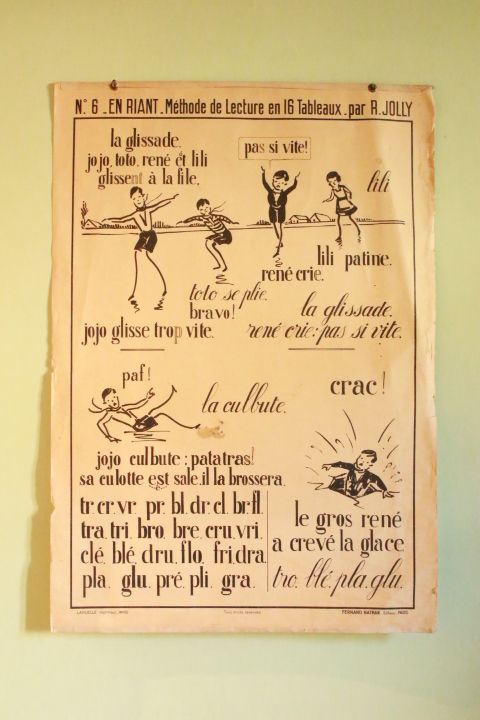 N° 6 _ EN RIANT _ Méthode de Lecture en 16 Tableaux _ par R. JOLLY
la glissade.
jojo, toto, rené et lili
glissent à la file.
pas si vite!
lili
lili patine.
rené crie.
toto se plie.
bravo!
jojo glisse trop vite.
la glissade.
rené crie: pas si vite.
paf!
la culbute.
crac!
jojo culbute : patatras!
sa culotte est sale. il la brossera.
tr. cr. vr. pr. bl. dr. cl. br. fl.
tra. tri. bro. bre. cru. vri.
clé. blé. dru. flo. fri. dra.
pla. glu. pré. pli. gra.
le gros rené
a crevé la glace
tro. blé. pla. glu.
Tous droits réservés
FERNAND NATHAN, Éditeur, PARIS